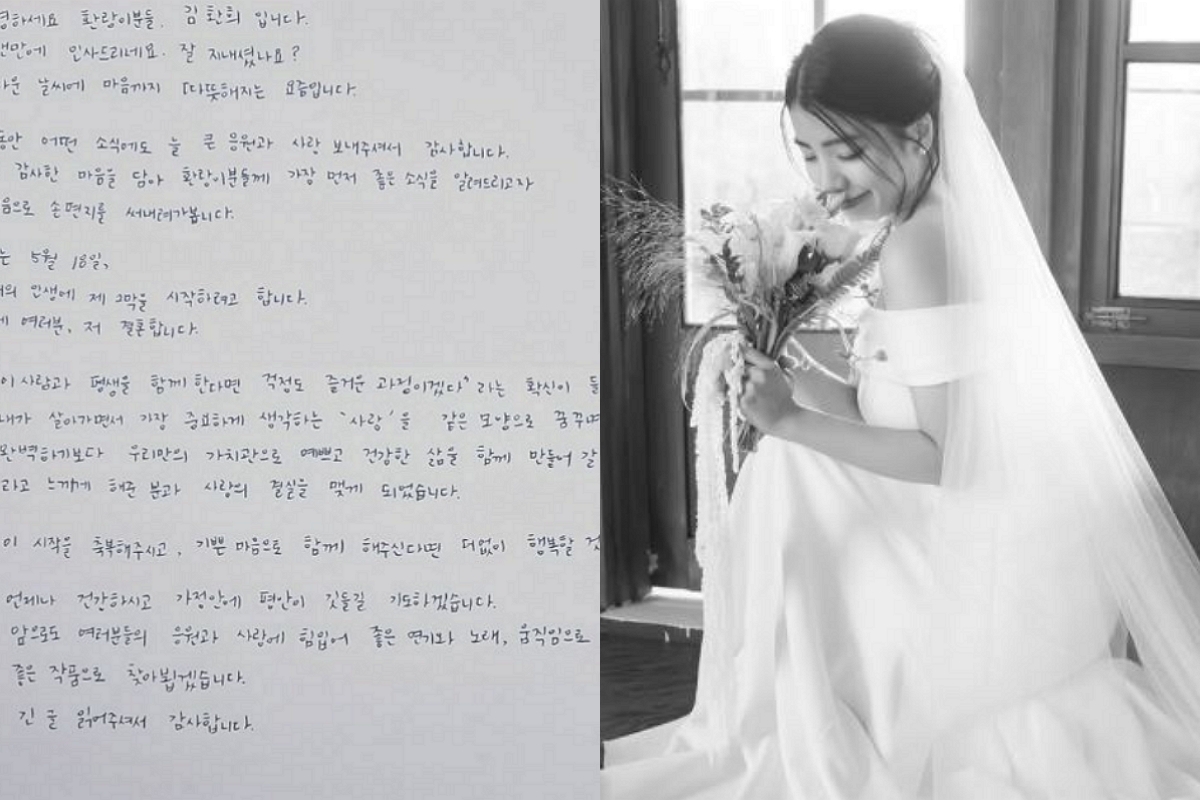 하세요 환랑이분들. 김환희 입니다.
만에 인사드리네요. 잘 지내셨나요?
운 날씨에 마음까지 따뜻해지는 요즘입니다.
동안 어떤 소식에도 늘 큰 응원과 사랑 보내주셔서 감사합니다.
감사한 마음을 담아 환랑이분들께 가장 먼저 좋은 소식을 알려드리고자
음으로 손편지를 써내려가봅니다.
는 5월 18일,
의 인생에 제 2막을 시작하려고 합니다.
여러분, 저 결혼합니다.
이 사람과 평생을 함께 한다면 걱정도 즐거운 과정이겠다" 라는 확신이 들
내가 살아가면서 가장 중요하게 생각하는 '사랑'을 같은 모양으로 꿈꾸며
완벽하기보다 우리만의 가치관으로 예쁘고 건강한 삶을 함께 만들어 갈
라고 느끼게 해준 분과 사랑의 결실을 맺게 되었습니다.
이 시작을 축복해주시고, 기쁜 마음으로 함께 해주신다면 더없이 행복할 것
언제나 건강하시고 가정안에 평안이 깃들길 기도하겠습니다.
앞으로도 여러분들의 응원과 사랑에 힘입어 좋은 연기와 노래, 움직임으로
좋은 작품으로 찾아뵙겠습니다.
긴 글 읽어주셔서 감사합니다.